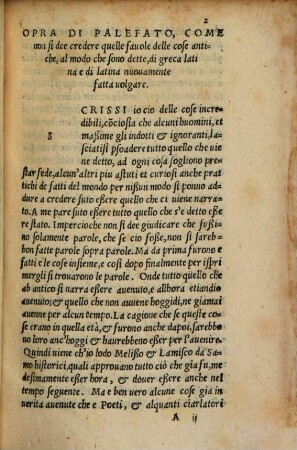 2
OPRA DI PALEFATO, COME
non si dee credere quelle fauole delle cose anti
che, al modo che sono dette, di greca lati
na e di latina nuouamente
fatta uolgare.
SCRISSI io cio delle cose incre
dibili, cõciosia che alcuni huomini, et
maßime gli indotti & ignoranti, la
sciatisi psoadere tutto quello che uie
ne detto, ad ogni cosa sogliono pre-
star fede, alcun'altri piu astuti et curiosi anche prat
tichi de fatti del mondo per nißun modo si ponno ad
dure a credere suto eßere quello che ci uiene narra-
to. A me pare eßere tutto quello che s'e detto eße
re stato. Impercioche non si dee giudicare che fußi
no solamente parole, che se cio foße, non si sareb-
bon fatte parole sopra parole. Ma da prima furono e
fatti e le cose insieme, e così dopoi finalmente per ispri
mergli si trouarono le parole. Onde tutto quello che
ab antico si narra eßere auenuto, e allhora etiandio
auenuto; & quello che non auuene hoggidi, ne giamai
auenne per alcun tempo. La cagione che se queste co-
se erano in quella età, & furono anche dapoi, sarebbe
no loro anc'hoggi & haurebbeno eßer per l'auenire.
Quindi uiene ch'io lodo Melißo & Lamisco da Sa-
mo historici, quali approuano tutto ciò che gia fu, me
desimamente eßer hora, & douer eßere anche nel
tempo seguente. Ma e ben uero alcune cose gia in
uerita auenute che e Poeti, & alquanti ciarlatori
A ij